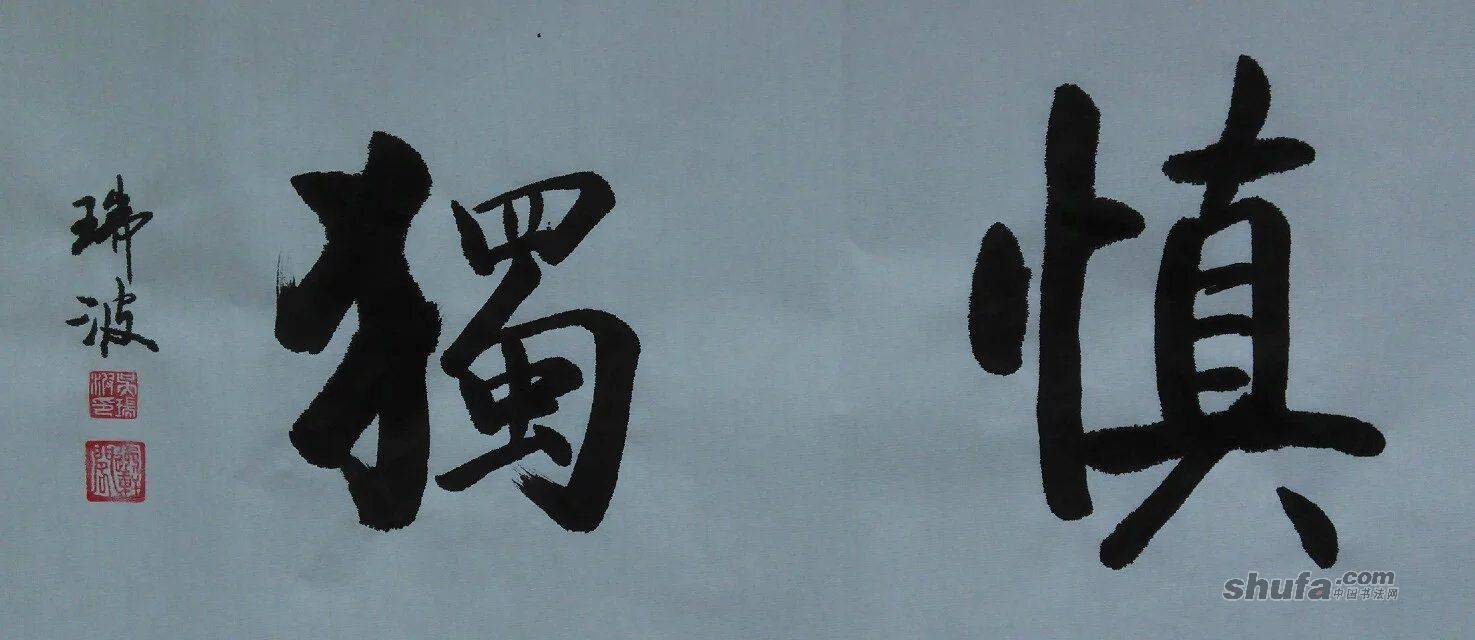 慎獨
瑞波
shufa.com
中国书法网